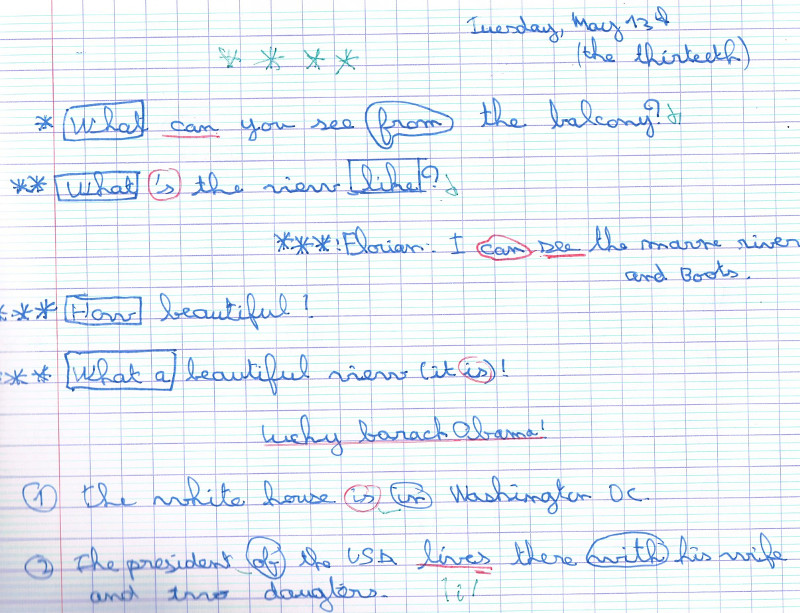 Tuesday, May 13th
(the thirteeth)
* What can you see from the balcony?
** What 's the view like?
***: Florian: I can see the marne river
and Boots.
*** How beautiful!
** What a beautiful view (it is)!
Lucky barack Obama!
① the white house is in Washington DC.
② The president of the USA lives there with his wife
and two daugters.